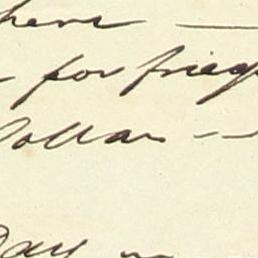 here —
for frieg
Dollar —
Day